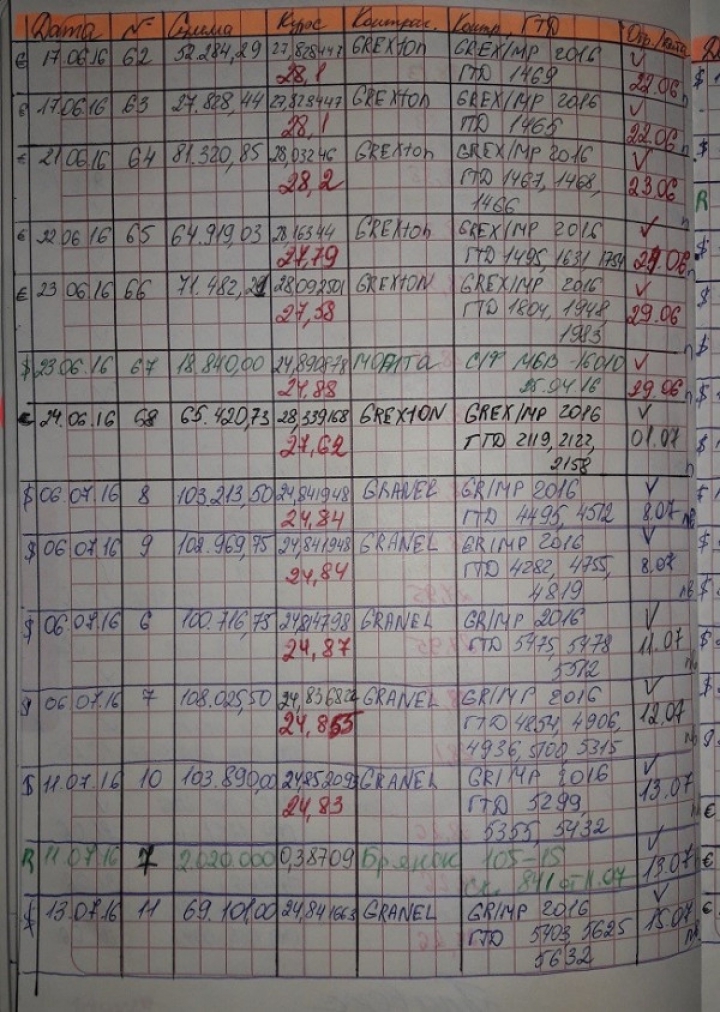 Дата № Сумма Курс Контраг. Контр., ГТД Отр./дата
€ 17.06.16 62 52.284,29 27,828447 GREXton GREX/IMP 2016 ✓
28,1 ГТД 1469 22.06 п
€ 17.06.16 63 27.828,44 27,828447 GREXton GREX/IMP 2016 ✓
28,1 ГТД 1465 22.06 п
€ 21.06.16 64 81.320,85 28,03246 GREXton GREX/IMP 2016 ✓
28,2 ГТД 1467, 1468, 23.06
1466 п
€ 22.06.16 65 64.919,03 28,16344 GREXton GREX/IMP 2016 ✓
27,79 ГТД 1495, 1631, 1754 29.06 п
€ 23.06.16 66 71.482,21 28,092501 GREXTON GREX/IMP 2016 ✓
27,58 ГТД 1804, 1948, 29.06
1983 п
$ 23.06.16 67 18.840,00 24,890878 С/Ф МБВ-16010 ✓
24,88 25.04.16 29.06 п
€ 24.06.16 68 65.420,73 28,339168 GREXTON GREX/IMP 2016 ✓
27,62 ГТД 2119, 2122, 01.07
2158 п
$ 06.07.16 8 103.213,50 24,841948 GRANEL GRIMP 2016 ✓
24,84 ГТД 4495, 4512 8.07 пв
$ 06.07.16 9 102.969,75 24,841948 GRANEL GRIMP 2016 ✓
24,84 ГТД 4282, 4755, 8.07
4819 пв
$ 06.07.16 6 100.716,75 24,814798 GRANEL GRIMP 2016 ✓
24,87 ГТД 5475, 5478 11.07
5512 пв
$ 06.07.16 7 108.025,50 GRANEL GRIMP 2016 ✓
24,855 ГТД 4854, 4906, 12.07
4936, 5100, 5315 пв
$ 11.07.16 10 103.890,00 24,852093 GRANEL GRIMP 2016 ✓
24,83 ГТД 5299, 13.07
5355, 5432 пв
R 11.07.16 7 2.020.000 0,38709 Брянск 105-15 ✓
сч. 841 от 11.07 13.07
$ 13.07.16 11 69.101,00 24,841663 GRANEL GRIMP 2016 ✓
ГТД 5403, 5625 15.07 пв
5632